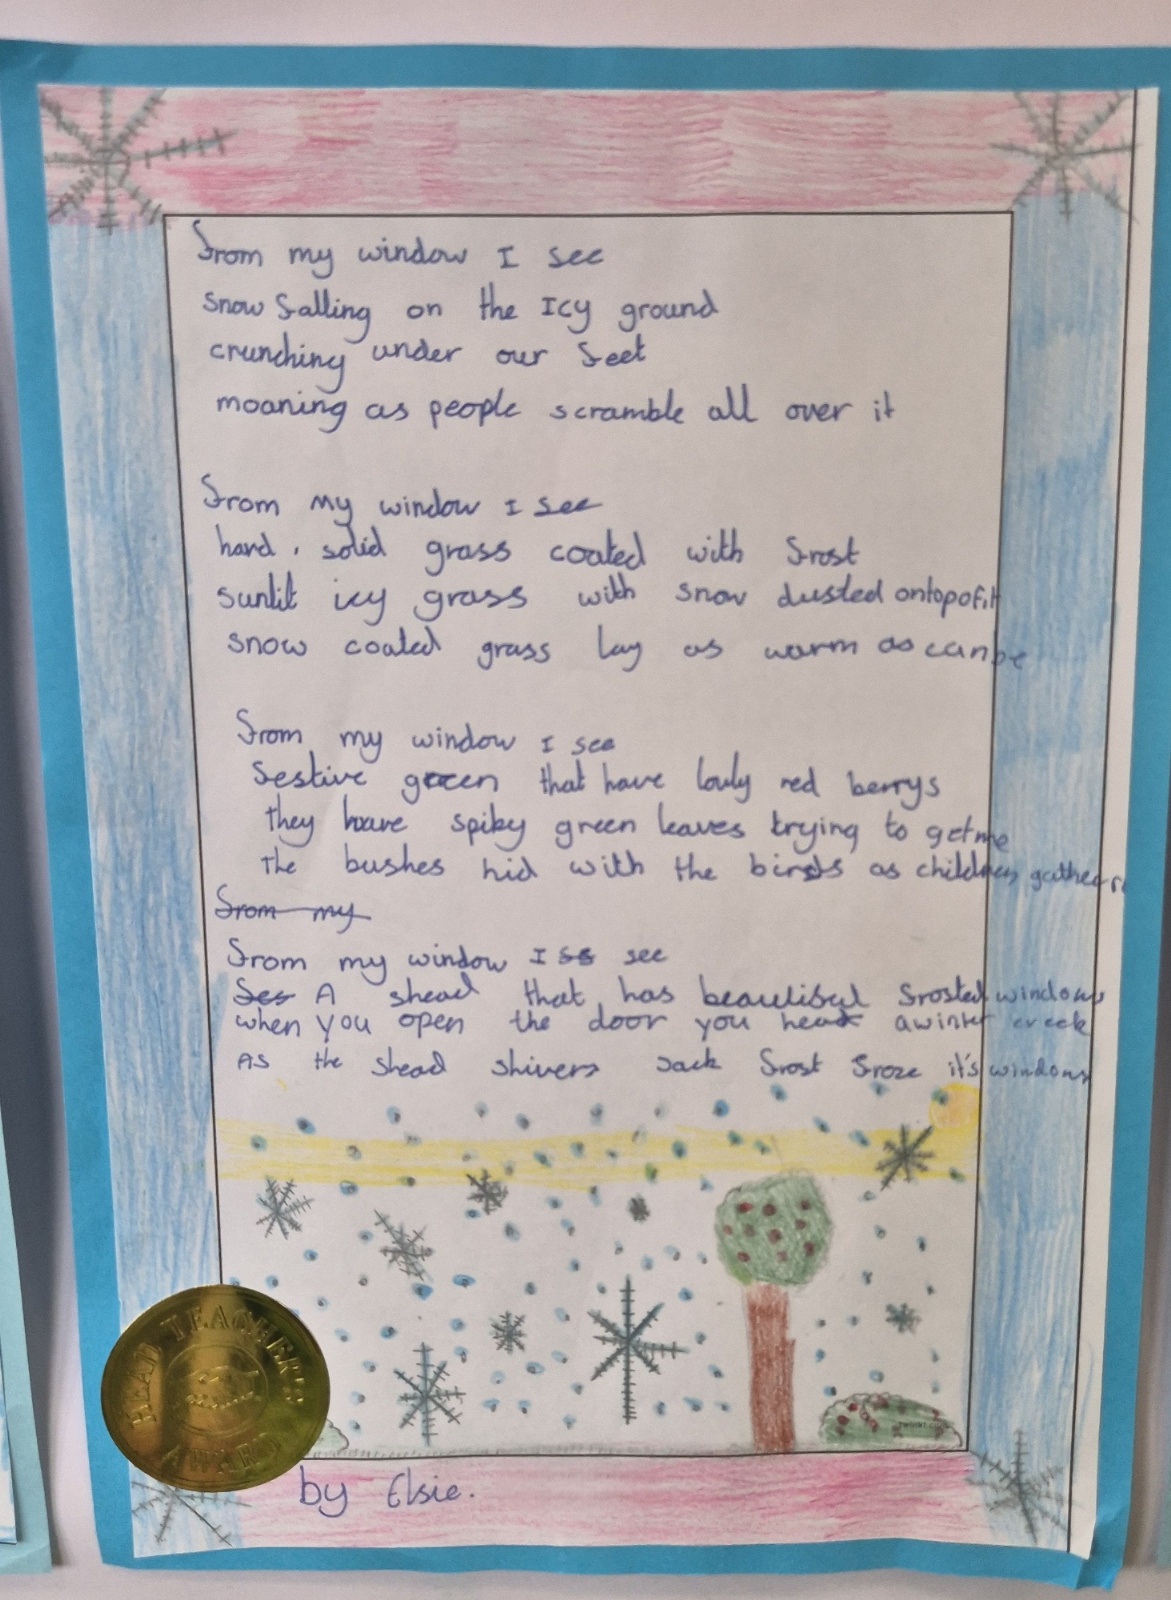 From my window I see
snow falling on the Icy ground
crunching under our feet
moaning as people scramble all over it
From my window I see
hard, solid grass coated with frost
sunlit icy grass with snow dusted ontopofit
snow coated grass lay as warm as can be
From my window I see
festive green that have lovly red berrys
they have spiky green leaves trying to get me
the bushes hid with the birds as children gather
From my
From my window I ss see
Ses A shead that has beautiful frosted windows
when you open the door you hear a winter creek
As the shead shivers Jack frost froze it's windows
HEAD TEACHER'S AWARD
by Elsie.